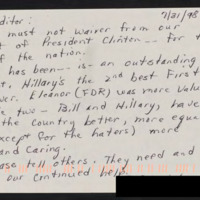 ditor: 7/31/98
must not waiver from our
t of President Clinton -- for t
of the nation.
has been -- is - an outstanding
t, Hillary's the 2nd best First
ver. Eleanor (FDR) was more valu
se two - Bill and Hillary, have
the Country better, more equa
xcept for the haters) more
and Caring.
ase tell others. They need and
our continued help.